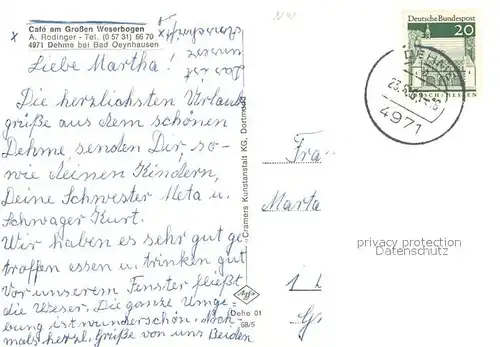 Café am Großen Weserbogen
A. Rodinger - Tel. (0 57 31) 66 70
4971 Dehme bei Bad Oeynhausen
x
Das ist
unsere
Liebe Martha!
Die herzlichsten Urlaubs
grüße aus dem schönen
Dehme senden Dir, so-
wie deinen Kindern,
Deine Schwester Meta u.
Schwager Kurt.
Wir haben es sehr gut ge
troffen essen u. trinken gut
Vor unserem Fenster fließt
die Weser. Die ganze Umge
bung ist wunderschön. Noch
mals herzl. Grüße von uns Beiden
Cramers Kunstanstalt KG, Dortmund
Agfa
Dehe 01
68/5
Deutsche Bundespost
20
DEHME
4971
Fra
Marta
privacy protection
Datenschutz
1